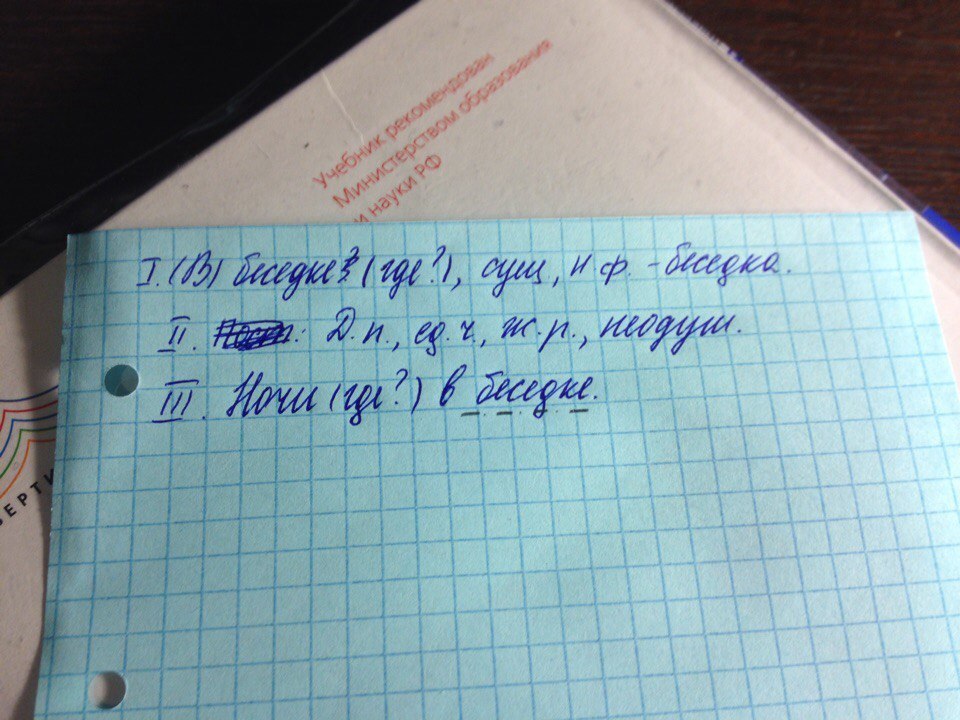 Учебник рекомендован
Министерством образования
и науки РФ
I. (В) беседке³ (где?), сущ, н ф. - беседка.
II. Д.п., ед.ч., ж.р., неодуш.
III. Ночи (где?) в беседке.
ВЕРТИ